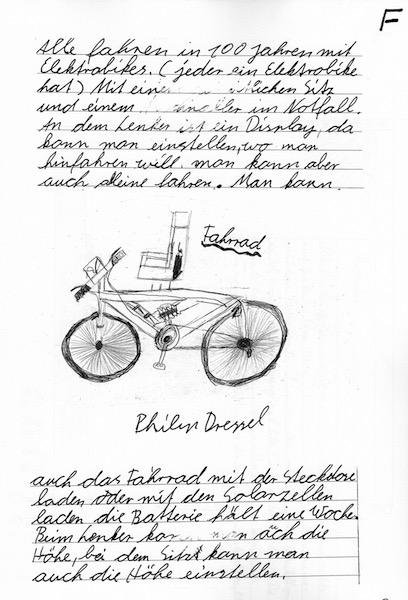 F
Alle fahren in 100 Jahren mit
Elektrobikes. (jeder ein Elektrobike
hat) Mit einem Sitz
und einem im Notfall.
An dem Lenker ist ein Display, da
kann man einstellen, wo man
hinfahren will. man kann aber
auch alleine fahren. Man kann
Fahrrad
Philip Dressel
auch das Fahrrad mit der Steckdose
laden oder mit den Solarzellen
laden die Batterie hält eine Woche.
Beim Lenker die
Höhe, bei dem Sitz kann man
auch die Höhe einstellen.